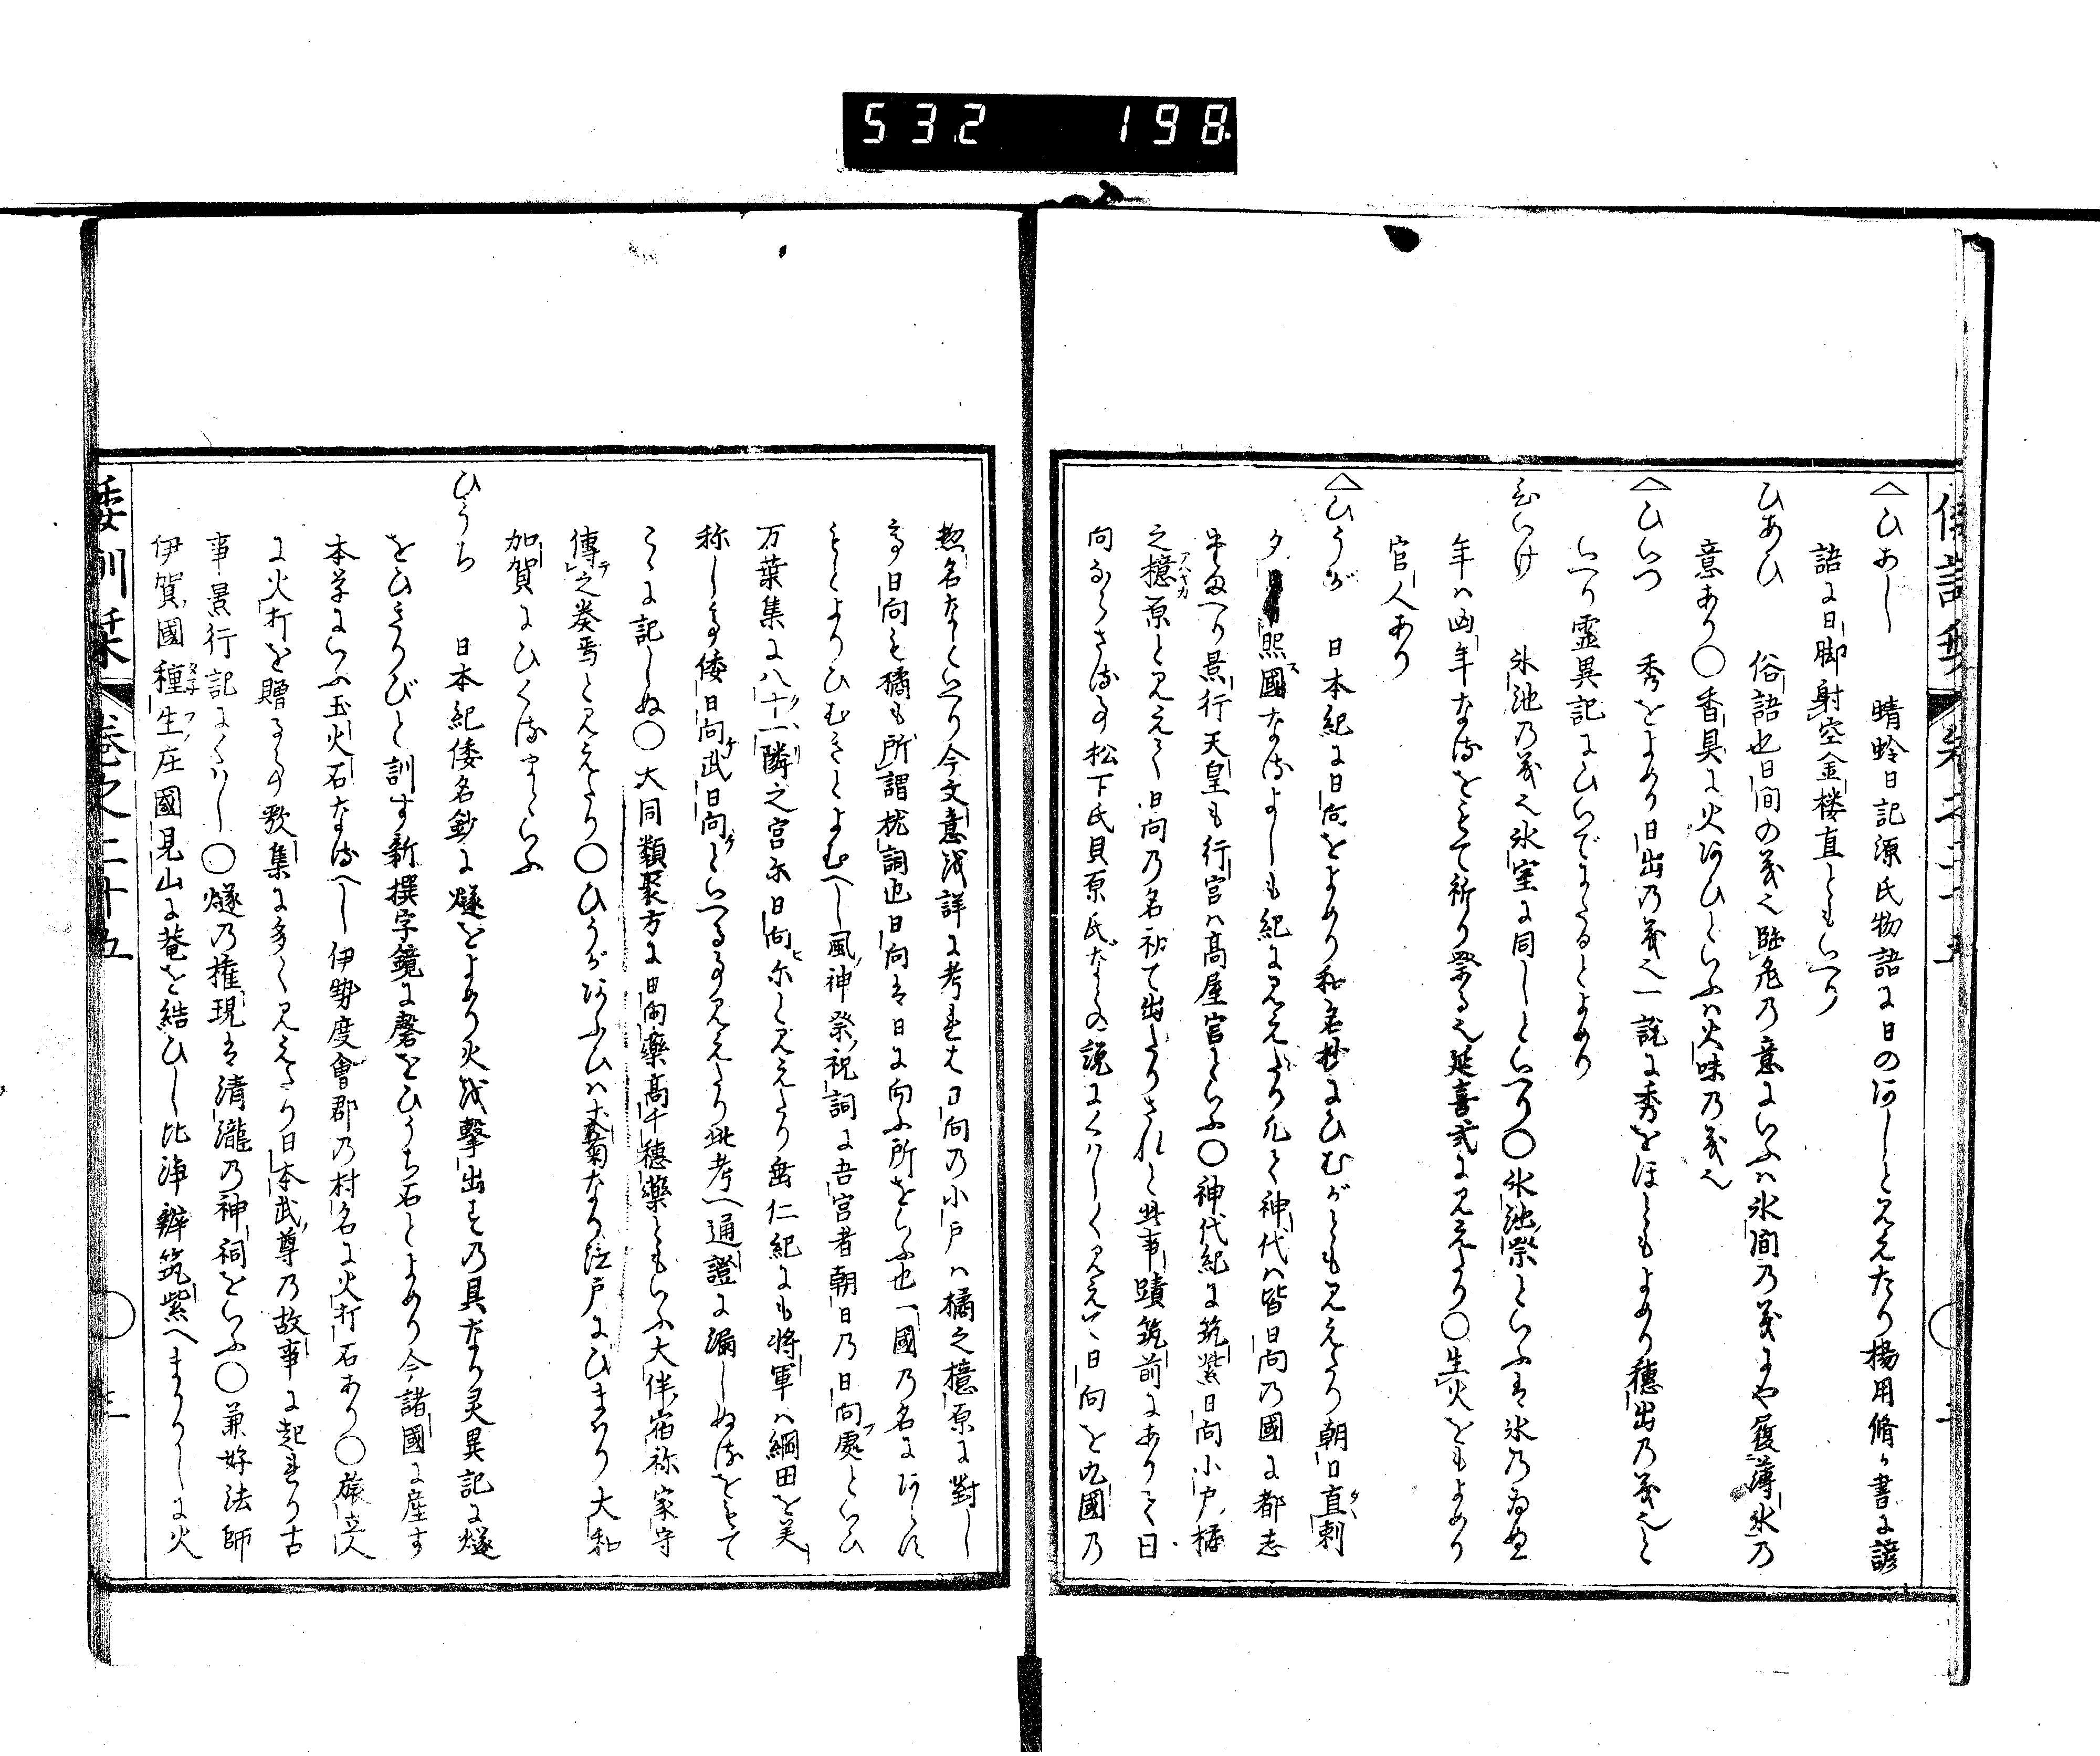 532 198
△ひあし 蜻蛉日記源氏物語に日のあしと見えたり楊用脩か書に諺
語に日脚射空金楼直ともいへり
ひあひ 俗語也日間の義也臨危乃意にいふハ氷間乃義にや履薄氷乃
意あり○香具に火あひといふハ火味乃義也
△ひいつ 秀をよめり日出乃義也一説に秀をほともよめり穗出乃義也と
いへり霊異記にひいでたるとよめり
ひいけ 氷池乃義也氷室に同しといへり○氷池祭といふハ氷乃ゐぬ
年ハ凶年なるをもて祈り祭る也延喜式に見えたり○生火をもよめり
官人あり
△ひうが 日本紀に日向をよめり和名抄にひむがとも見えたり朝日直刺
夕日照國なるよしも紀に見えたり凡て神代ハ皆日向乃國に都志
たまへり景行天皇も行宮ハ高屋宮といふ○神代紀に筑紫日向小戸橘
之檍原と見えて日向乃名初て出たりされと此事蹟筑前にありて日
向ならさる事松下氏貝原氏なとの説にくハしく見えて日向を九國乃
惣名なといへり今文意を詳に考るに日向乃小戸ハ橘之檍原に對し
て日向も橘も所謂枕詞也日向は日に向ふ所をいふ也一國乃名にあらす
もとよりひむきとよむへし風神祭祝詞に吾宮者朝日乃日向處といひ
万葉集に八十一隣之宮尓日向尓と見えたり垂仁紀にも將軍八綱田を美
称して倭日向武日向といへる事見えたり此考へ通證に漏しぬるをもて
こゝに記しぬ○大同類聚方に日向藥高千穗藥ともいふ大伴宿祢家守
傳之奏焉と見えたり○ひうがあふひハ丈菊なり江戸にひまハり大和
加賀にひくるまといふ
ひうち 日本紀倭名鈔に燧をよめり火を擊出すの具なり灵異記に燧
をひきりびと訓す新撰字鏡に磬をひうち石とよめり今諸國に産す
本草にいふ玉火石なるへし伊勢度會郡乃村名に火打石あり○旅立人
に火打を贈る事歌集に多く見えたり日本武尊乃故事に起れり古
事景行記にくハし○燧乃権現は清瀧乃神祠をいふ○兼好法師
伊賀國種生庄國見山に菴を結ひし比浄辨筑紫へまかりしに火
倭訓栞 卷之二十五 ○ 三